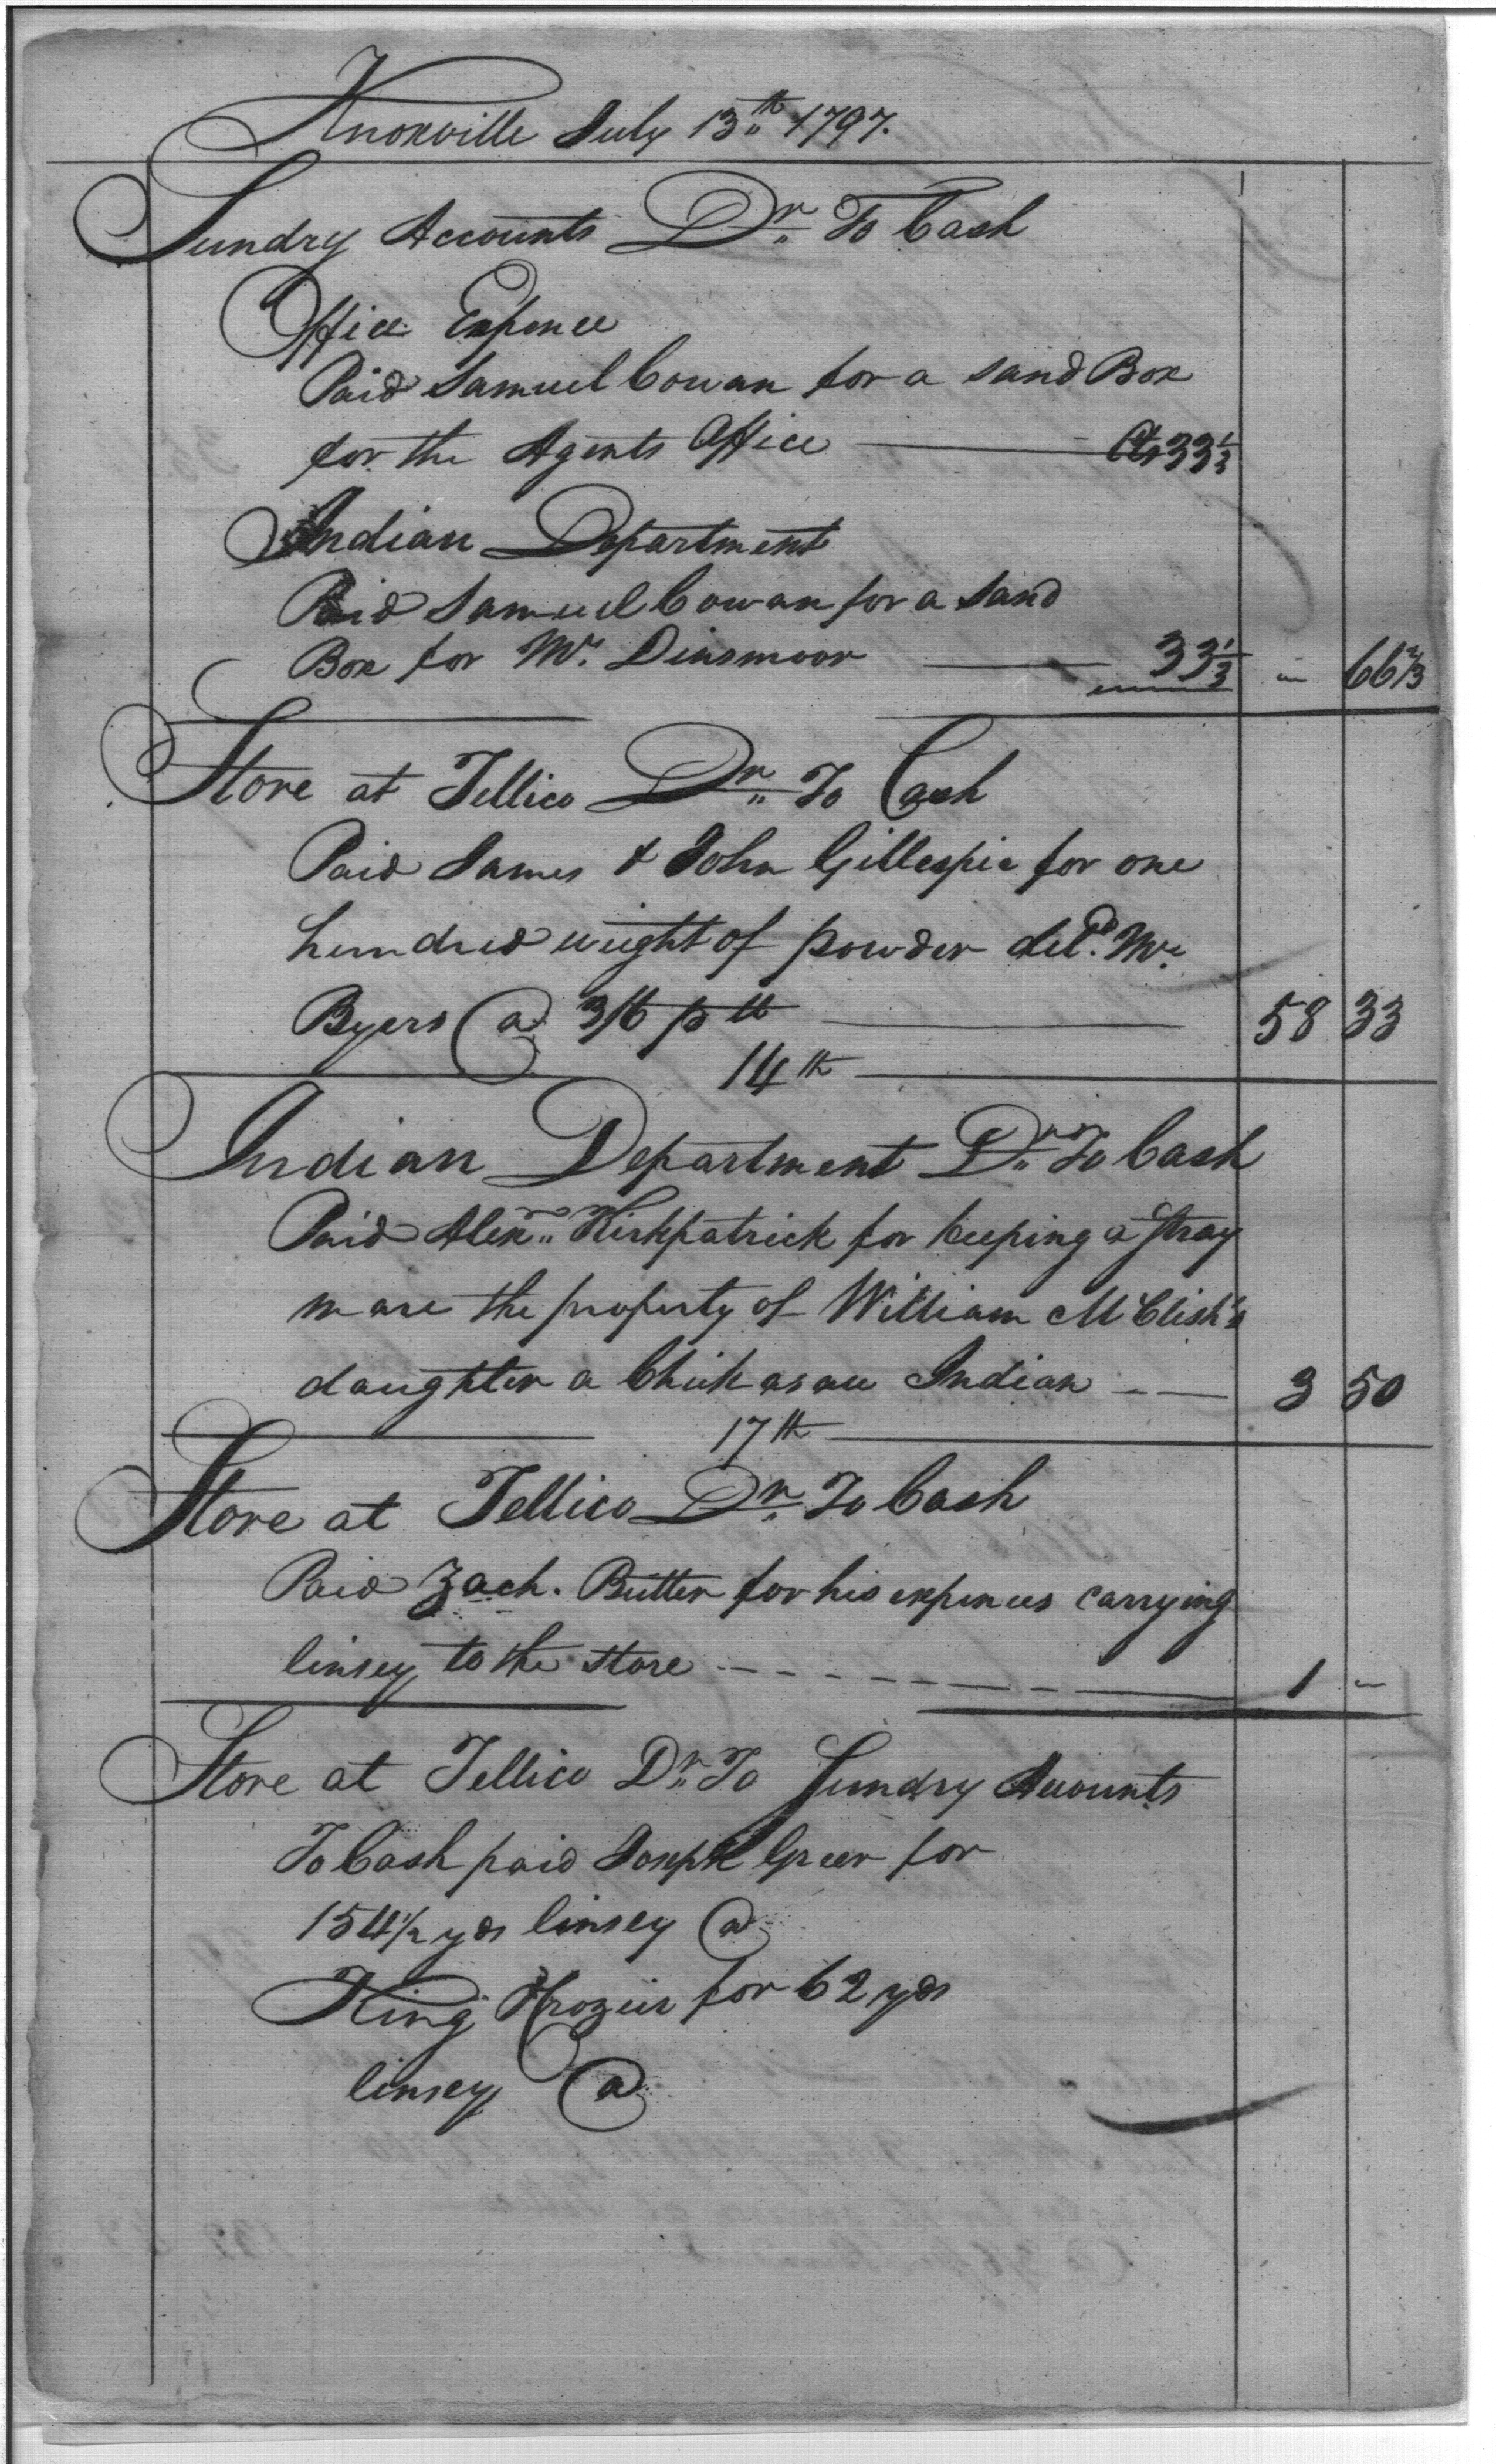 Knoxville July 13th 1797.
Sundry Accounts Dr. To Cash
Office Expence
Paid Samuel Cowan for a sand Box
for the Agents Office Cts 33 1/3
Indian Department
Paid Samuel Cowan for a Sand
Box for Mr. Dinsmoor 33 1/3 " 66 2/3
Store at Tellico Dr. To Cash
Paid James & John Gillespie for one
hundred weight of powder deld. Mr.
Byers @ 3/6 p lb 58 33
14th
Indian Department Dr. To Cash
Paid Alexr. Kirkpatrick for keeping a Stray
mare the property of William McClish's
daughter a Chickasaw Indian 3 50
17th
Store at Tellico Dr. To Cash
Paid Zach. Butler for his expences carrying
linsey to the Store 1 "
Store at Tellico Dr. To Sundry Accounts
To Cash paid Joseph Greer for
154 1/2 yds linsey @
King for 62 yds
linsey @